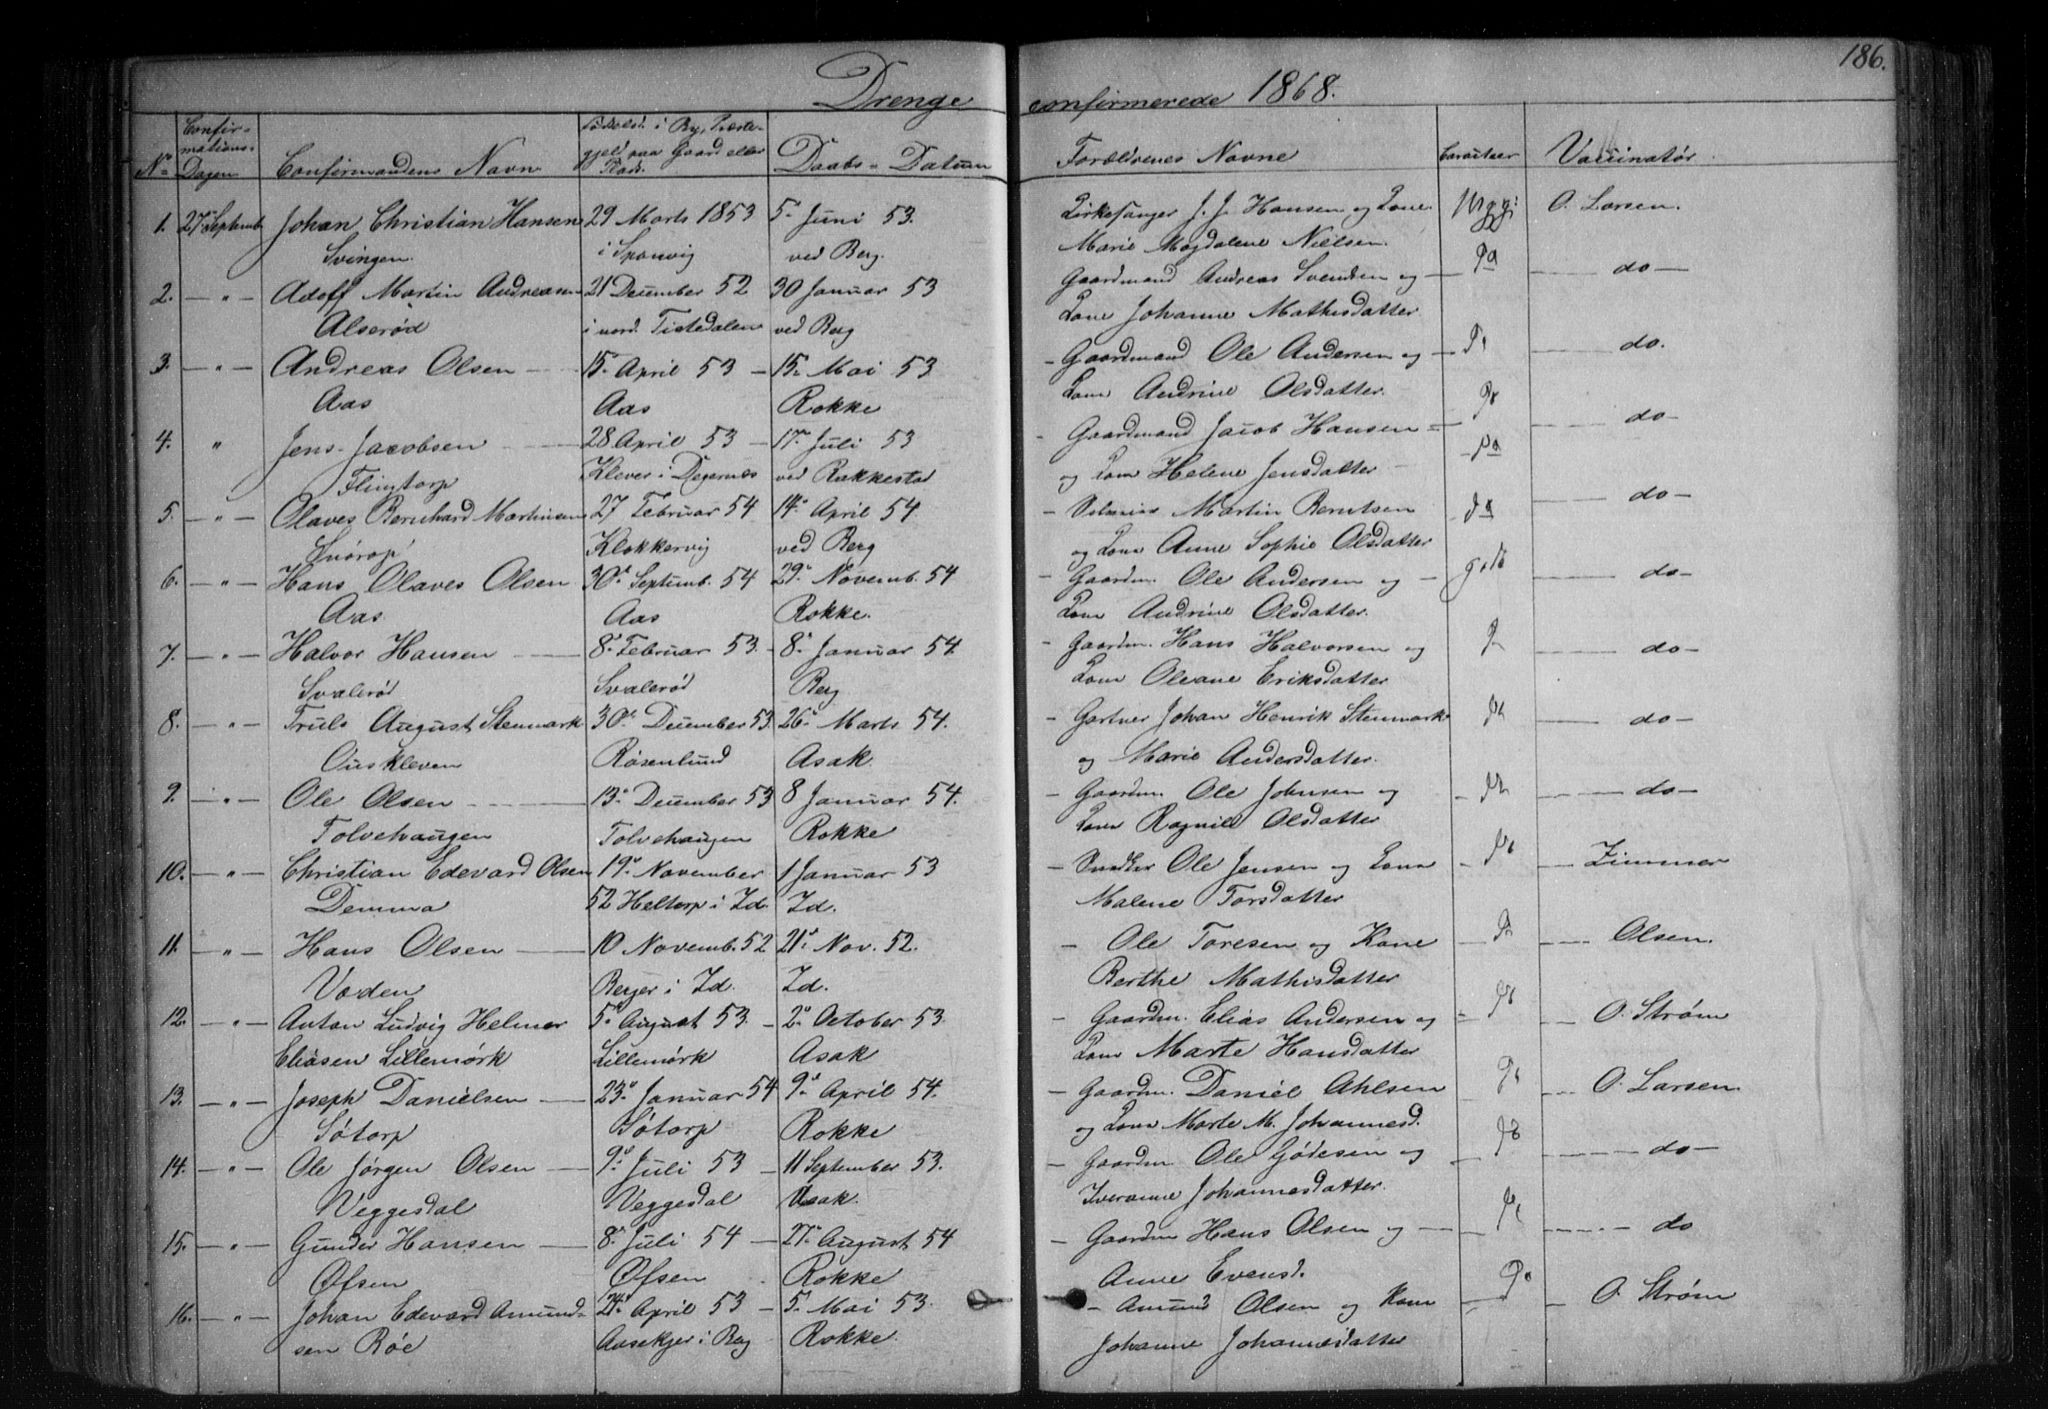 186.
Drenge confirmerede 1868.
No Confirmations-Dagen Confirmandens Navn Fødested i By, Præstegjeld paa Gaard eller Plads. Daabs-Datum Forældrenes Navne Caracteer Vaccinatør
1. 27 Septemb. Johan Christian Hansen 29 Marts 1853 5. Juni 53. Kirkesanger J. J. Hansen og Kone O. Larsen.
Svingen. i Sponvig ved Berg. Marie Magdalene Nielsen.
2. — " — Adolf Martin Andreasen 21 December 52 30 Januar 53 Gaardmand Andreas Svendsen og — do —
Alserød i nord. Tistedalen ved Berg Kone Johanne Mathisdatter
3. — " — Andreas Olsen — 15. April 53 — 15. Mai 53 — Gaardmand Ole Andersen og — do.
Aas Aas Rokke Kone Andrine Olsdatter.
4. " Jens Jacobsen 28 April 53 — 17. Juli 53 — Gaardmand Jacob Hansen — do —
Flintorp Klever i Degernes ved Rakkestad og Kone Helene Jensdatter —
5. — " — Olaves Bernhard Martinsen 27 Februar 54 14. April 54. — Martin Berntsen — do —
Klokkervig ved Berg og Kone Anne Sophie Olsdatter
6. — " — Hans Olaves Olsen 30. Septemb. 54 29. Novemb. 54 — Gaardm. Ole Andersen og — godt — do —
Aas Aas Rokke. Kone Andrine Olsdatter.
7. — " — Halvor Hansen — 8. Februar 53. — 8. Januar 54. — Gaardm. Hans Halvorsen og — do —
Svalerød Svalerød Berg Kone Oleane Eriksdatter
8. — " — Truls August Stenmark 30. December 53. 26. Marts 54. — Gartner Johan Henrik Stenmark — do —
Ouskleven Rosenlund Asak. og Marie Andersdatter.
9. — " — Ole Olsen — 13. December 53 8 Januar 54. — Gaardm. Ole Johnsen og — do —
Tolvehaugen Tolvehaugen Rokke Kone Ragnild Olsdatter
10. — " — Christian Edevard Olsen 19. November 1 Januar 53 — Snedker Ole Jensen og Kone — Zimmer
Demma 52 Heltorp i Id. Id. Malene Torsdatter
11. — " — Hans Olsen — 10 Novemb. 52 21. Nov. 52. — Ole Toresen og Kone — Olsen.
Vaden Berger i Id. Id. Berthe Mathisdatter
12. — " — Anton Ludvig Helmer 5. August 53. — 2. October 53. — Gaardm. Elias Andersen og — O. Strøm
Eliasen Lillemørk Lillemørk Asak Kone Marte Hansdatter
13. — " — Joseph Danielsen — 23. Januar 54 9. April 54. — Gaardm. Daniel Ahlsen — O. Larsen.
Søtorp Søtorp Rokke og Kone Marte M. Johannesd.
14. — " — Ole Jørgen Olsen — 9. Juli 53 — 11 September 53. — Gaardm Ole Gødesen og — do —
Veggesdal Veggesdal Asak. Iveranne Johannesdatter.
15. — " — Gunder Hansen — 8. Juli 54 — 27. August 54 — Gaardm Hans Olsen og — do
Øfsen Øfsen Rokke Anne Evensd.
16. — " — Johan Edevard Amund- 24. April 53 — 5. Mai 53. — Amund Olsen og Kone — O. Strøm
sen Röe i Berg Rokke. Johanne Johannesdatter